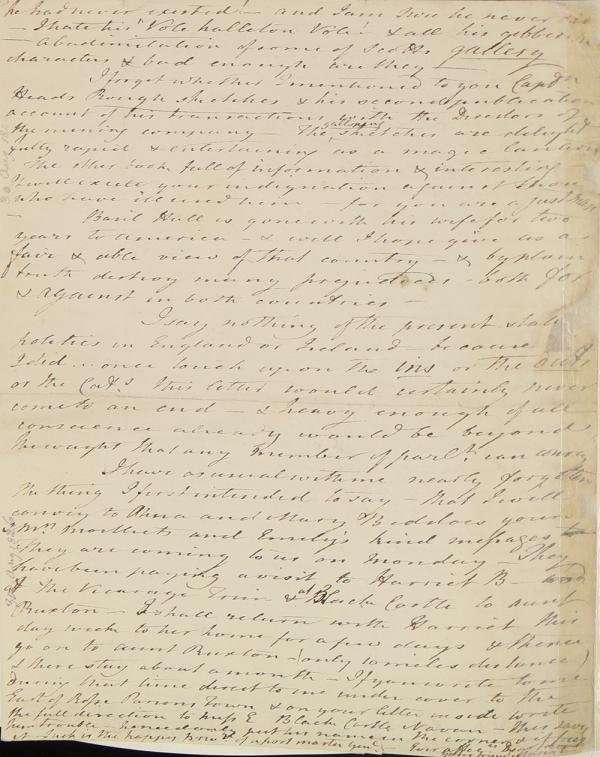 he had never existed! – and I am sure he never did
– I hate his "Vole halleton Vole" & all his gibberish
– A bad imitation of some of Scotts gallery
characters & bad enough are they –
I forgot whether I mentioned to you Captn
Heads Rough sketches & his second publication
account of his transactions with the Directors of
the mining company – The galloping sketches are delight
fully rapid & entertaining as a magic lantern
The other book full of information & interesting
& will excite your indignation against those
who have ill used him – for you are a just man
– Basil Hall is gone with his wife for two
years to America – & will I hope give us a
fair & able view of that country – & by plain
truth destroy many prejudices – both for
& against in both countries –
I say nothing of the present state
politics in England or Ireland – because
I did ... once touch upon the ins or the outs
or the Caths this letter would certainly never
come to an end – & heavy enough of all
conscience already would be beyond
the weight that any member of parlt can
I have as usual with me nearly forgotten
the thing I first intended to say – that I will
convey to Anna and Mary Beddoes your
Mrs Marcets and Emily's kind messages –
They are coming to us on Monday They
have been paying a visit to Harriet B – and
at The Vicarage Trim & at Black Castle to aunt
Ruxton – I shall return with Harriet this
day week to her home for a few days & thence
go on to aunt Ruxton – (only 10 miles distance)
& there stay about a month – If you write to me
during that time direct to me under cover to the
Earl of Rosse Parsons town & on your letter inside write
the full direction to Miss E Black Castle Navan – This
him trouble – hence only put his name in the corner &
it Such is the happy of a post master Genl – Your